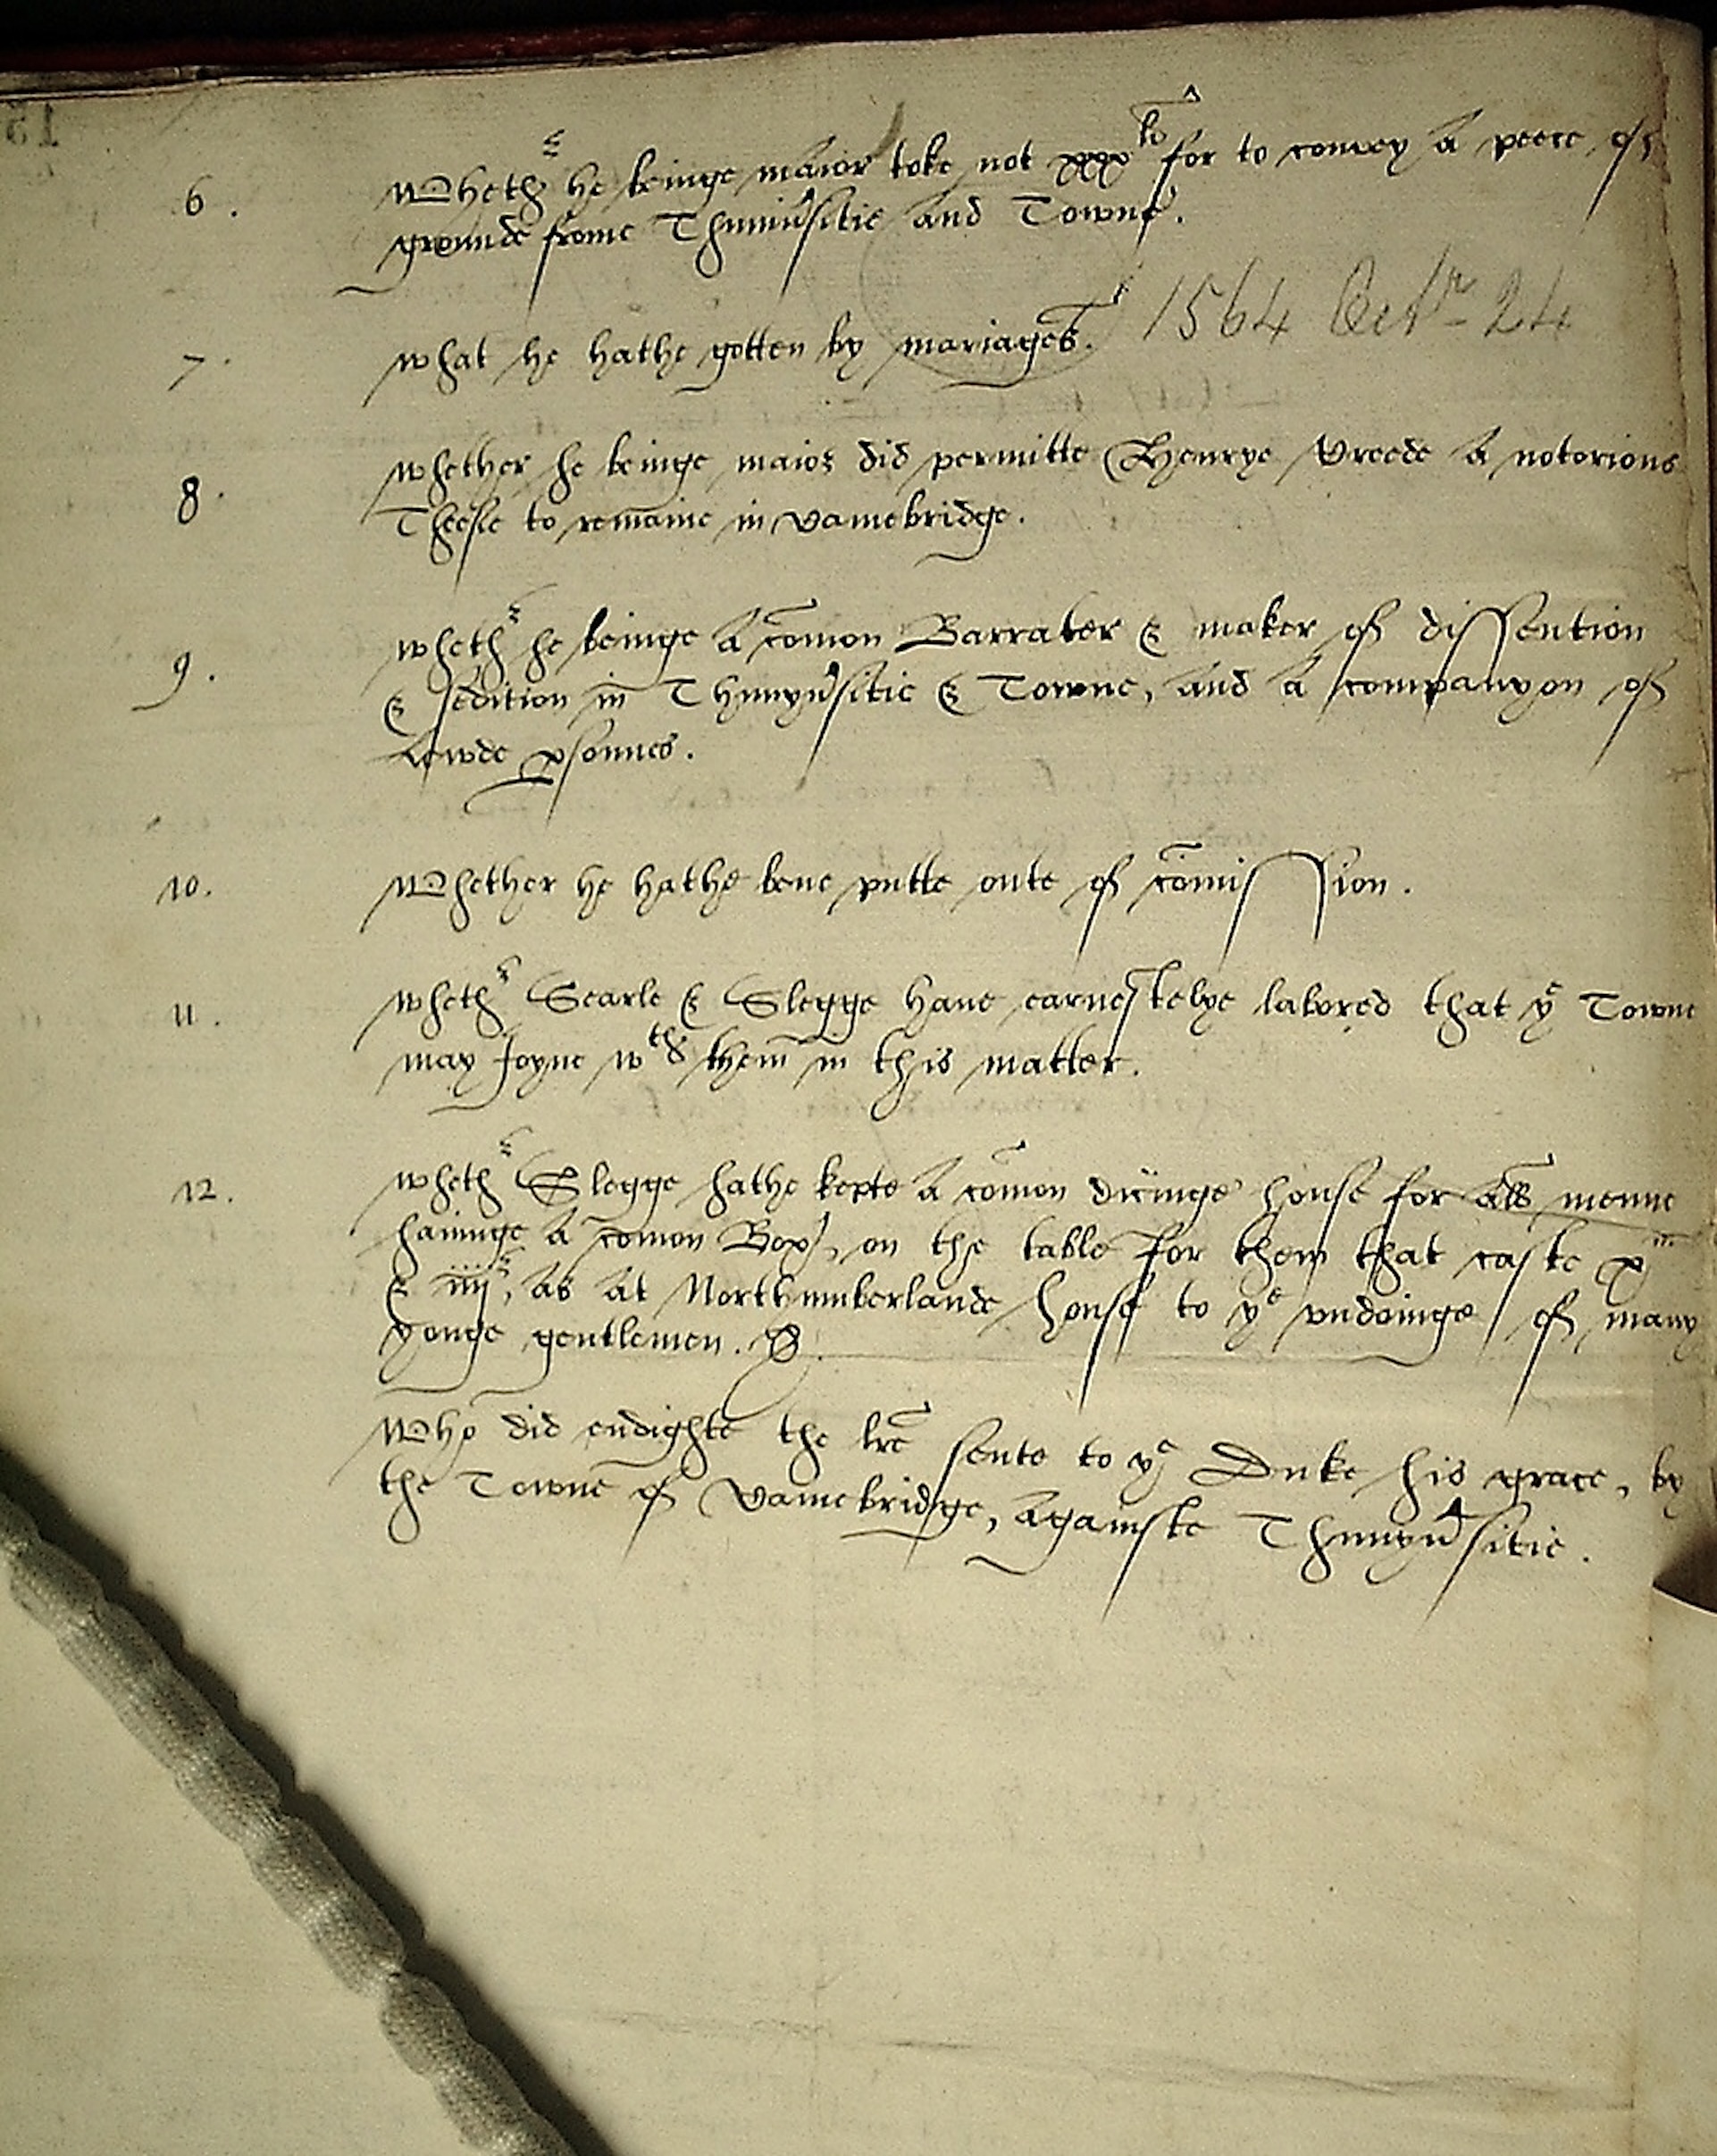 6. Wheth^r he beinge maior toke not xxx^li for to convey a peece of
grounde frome Thuniu'sitie and Towne.
1564 Oct^r 24
7. What he hathe gotten by mariages.
8. Whether he beinge maior did permitte Henrye
Theefe to remaine in Camebridge.
a notorious
9. Wheth^r he beinge a com̄on Barrater & maker of dissention
& sedition in Thunyu'sitie & Towne, and a companyon of
Lewde p̱sonnes.
10. Whether he hathe bene putte oute of com̄ission.
11. Wheth^r Searle & Slegge haue earnestelye labored that y^e Towne
may Joyne w^th them̄ in this matter.
12. Wheth^r Slegge hathe kepte a com̄on dicinge house for all menne
hauinge a com̄on Box, on the table for them that caste
& iiij, as at Northumberlande house to y^e vndoinge of many
yonge gentlemen.
Who did endighte the lr̄e sente to y^e Duke his grace, by
the Towne of Camebridge, againste Thunyu'sitie.